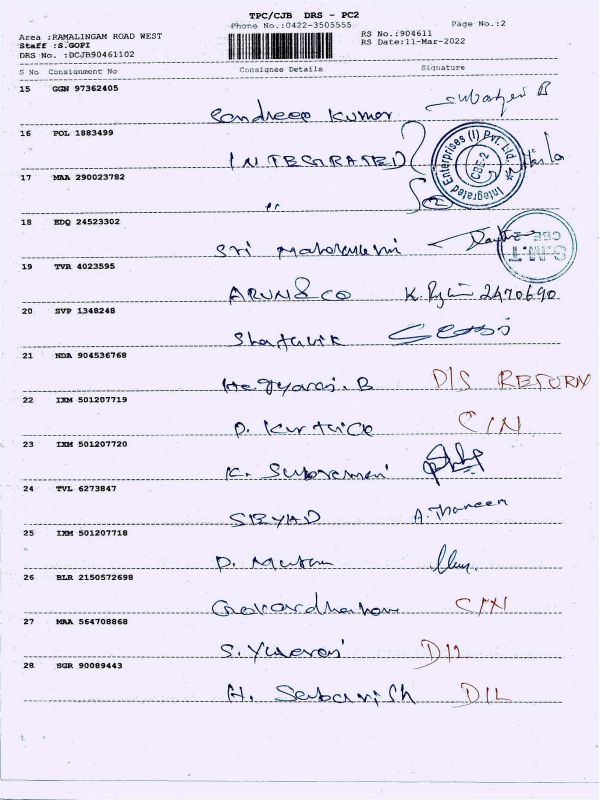 TPC/CJB DRS - PC2
Phone No.:0422-3505555
Page No.:2
Area :RAMALINGAM ROAD WEST
Staff :S.GOPI
DRS No. :DCJB90461102
RS No.:904611
RS Date:11-Mar-2022
S No Consignment No Consignee Details Signature
15 GGN 97362405
Sandreep Kumar
16 POL 1883499
INTEGRATED
Integrated Enterprises (I) Pvt. Ltd.
CBE-2
17 MAA 290023782
"
18 EDQ 24523302
Sri
S.M.T.
CBE-2
19 TVR 4023595
ARUN & CO 2470690
20 SVP 1348248
21 NDA 904536768
B D/S RETURN
22 IXM 501207719
D. C/N
23 IXM 501207720
K. Subramani
24 TVL 6273847
SEYAD A. Thareen
25 IXM 501207718
D.
26 BLR 2150572698
Govardhanan C/N
27 MAA 564708868
S. Yuvaraj D/L
28 SGR 90089443
H. Sabarish D/L